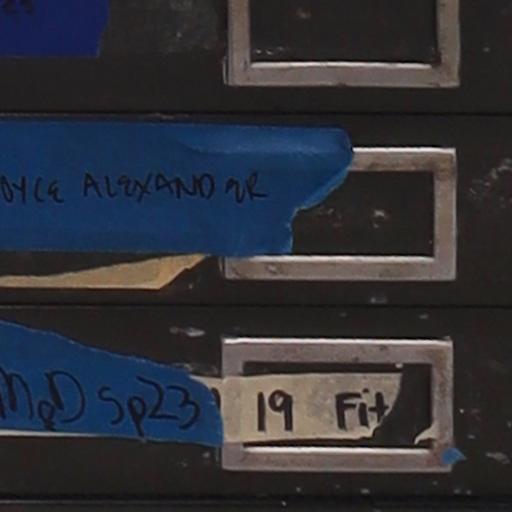 OYCE ALEXANDER
MOD Sp23
19 Fit